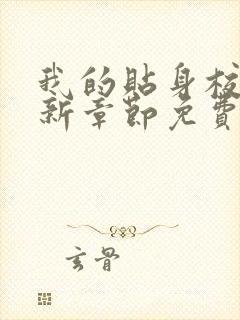 我的貼身校
新章節免費
玄骨